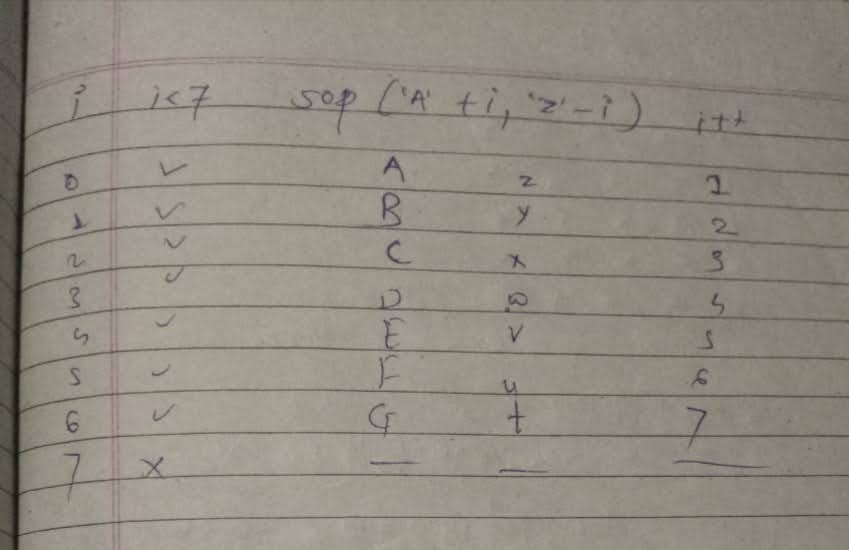 i i<7 sop ('A' + i, 'z' - i) i++
0 ✓ A z 1
1 ✓ B y 2
2 ✓ C x 3
3 ✓ D w 4
4 ✓ E v 5
5 ✓ F u 6
6 ✓ G t 7
7 × — — —